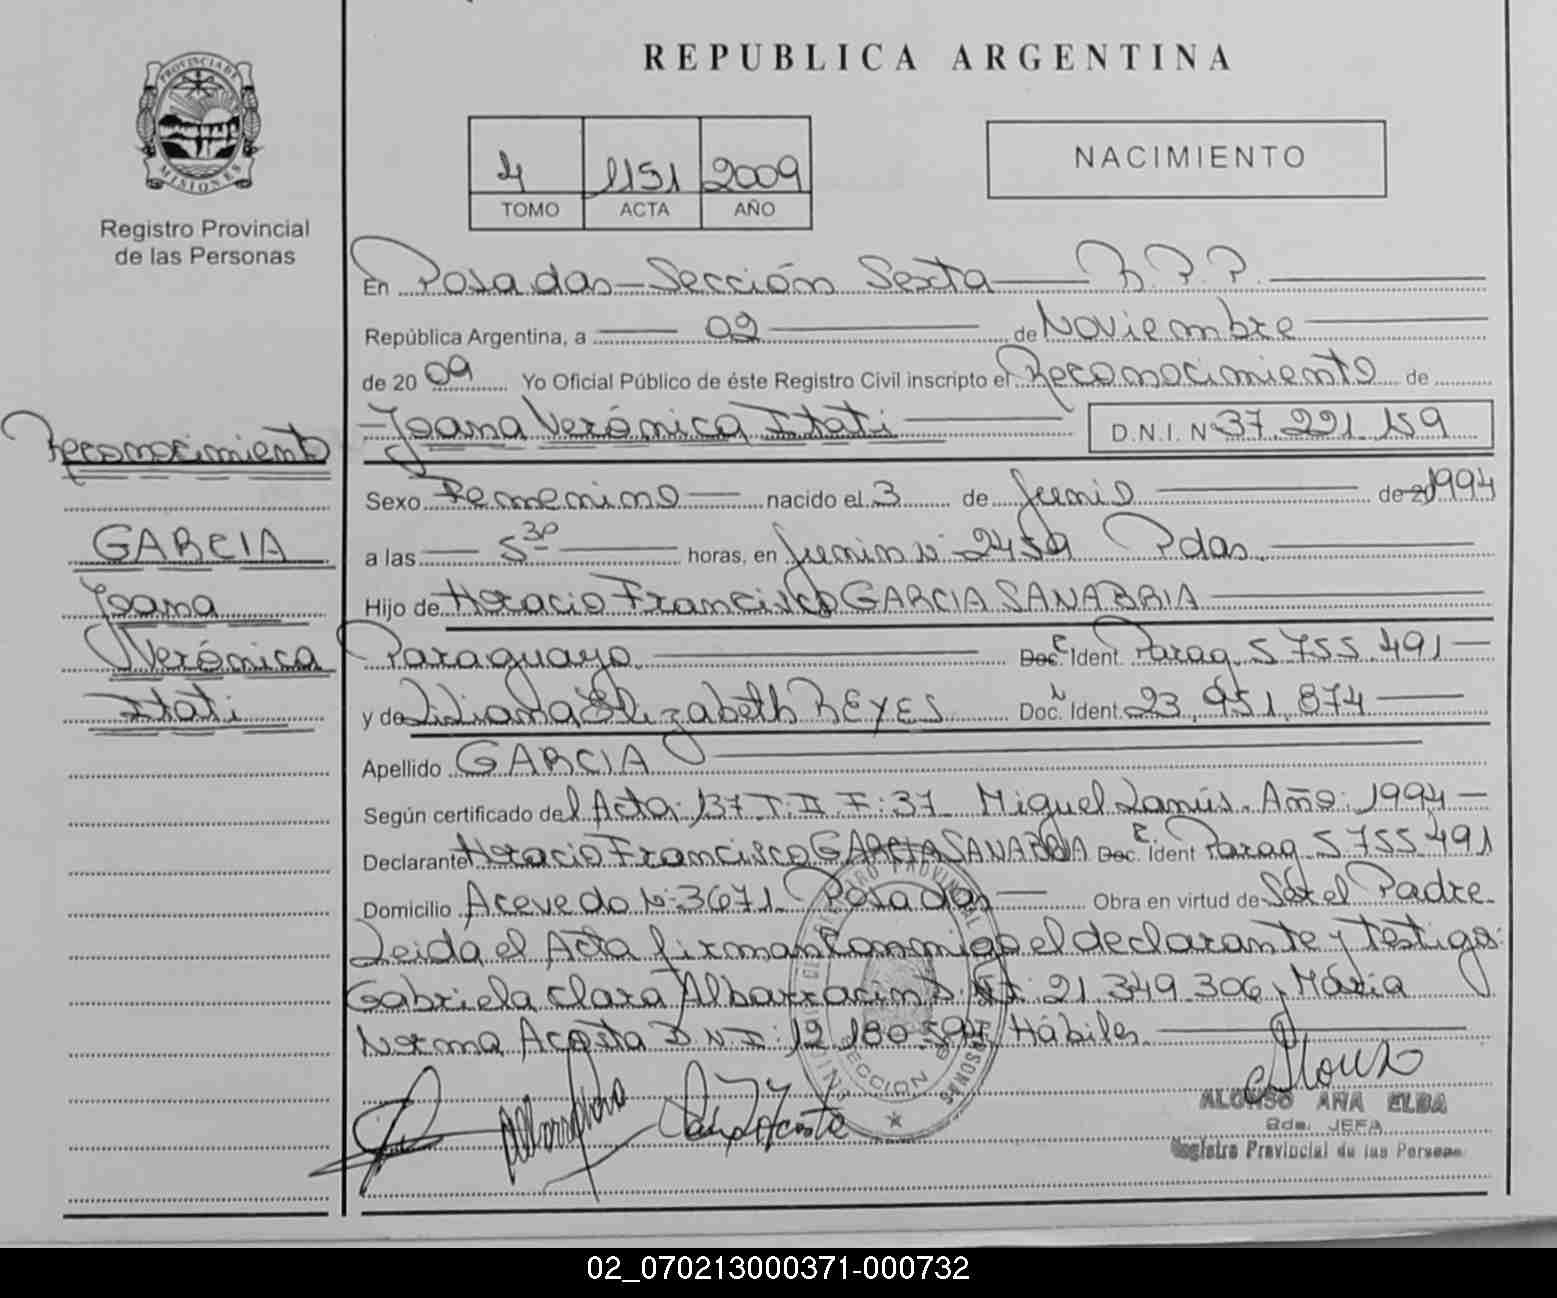 REPUBLICA ARGENTINA
PROVINCIA DE
MISIONES
Registro Provincial
de las Personas
4 1151 2009
TOMO ACTA AÑO
NACIMIENTO
En Posadas - Sección Sexta R.P.P.
República Argentina, a 02 de Noviembre
de 2009 Yo Oficial Público de éste Registro Civil inscripto el Reconocimiento de
Joana Verónica Itati D.N.I. Nº 37.221.159
Reconocimiento
GARCIA
Joana
Verónica
Itati
Sexo Femenino nacido el 3 de Junio de 20 1994
a las 5 30 horas, en Junin Nº 2459 Pdas.
Hijo de Horacio Francisco GARCIA SANABRIA
Paraguayo Doc. Ident. Parag. 5755.491
y de Liliana Elizabeth REYES Doc. Ident. 23.951.874
Apellido GARCIA
Según certificado del Acta: 137 T: II F: 37 Miguel Lanús. Año: 1994
Declarante Horacio Francisco GARCIA SANABRIA Doc. Ident Parag 5755.491
Domicilio Acevedo Nº 3671 Posadas Obra en virtud de Ser el Padre
Leida el Acta firman conmigo el declarante y testigos:
Gabriela Clara Albarracin D.N.I: 21.349.306, Mária
Norma Acosta D.N.I: 12.180.594, Hábiles.
ALONSO ANA ELBA
Bda. JEFA
Registro Provincial de las Personas
02_070213000371-000732